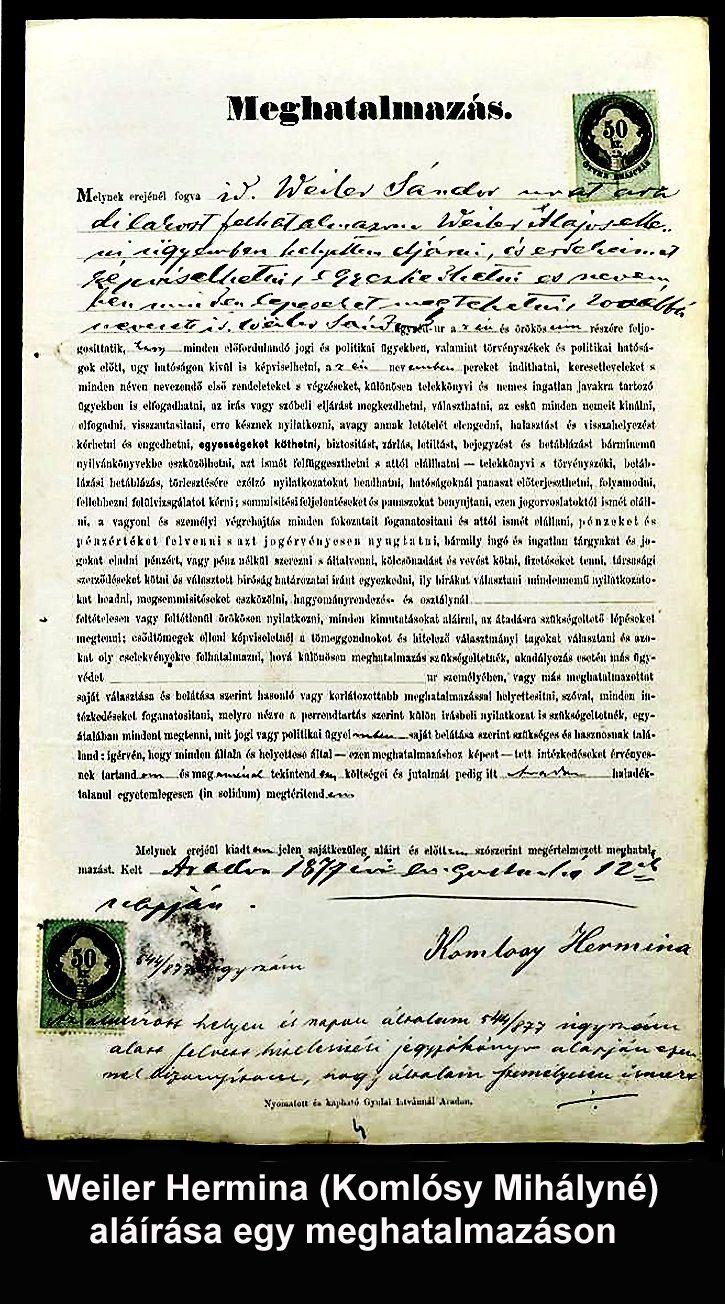 Meghatalmazás.
50
kr.
Melynek erejénél fogva id. Weiler Sándor urat
felhatalmazom Weiler Alajos elle-
ni ügyemben helyettem eljárni, és érdekeimet
képviselhetni, egyezkedhetni és nevem-
ben minden lépéseket megtehetni,
id. Weiler ügyvéd ur a és örökös részére feljo-
gosittatik, hogy minden előfordulandó jogi és politikai ügyekben, valamint törvényszékek és politikai hatósá-
gok előtt, ugy hatóságon kivül is képviselhetni, az én nevemben pereket indithatni, keresetleveleket s
minden néven nevezendő első rendeleteket s végzéseket, különösen telekkönyvi és nemes ingatlan javakra tartozó
ügyekben is elfogadhatni, az irás vagy szóbeli eljárást megkezdhetni, választhatni, az eskü minden nemeit kinálni,
elfogadni, visszautasitani, erre késznek nyilatkozni, avagy annak letételét elengedni, halasztást és visszahelyezést
kérhetni és engedhetni, egyességeket köthetni, biztositást, zárlás, letiltást, bejegyzést és betáblázást bárminemü
nyilvánkönyvekbe eszközölhetni, azt ismét felfüggeszthetni s attól elállhatni — telekkönyvi s törvényszéki, betáb-
lázási betáblázás, törlesztésére czélzó nyilatkozatokat beadhatni, hatóságoknál panaszt előterjeszthetni, folyamodni,
fellebbezni felülvizsgálatot kérni; sommisitési feljelentéseket és panaszokat benyujtani, ezen jogorvoslatoktól ismét eláll-
ni, a vagyoni és személyi végrehajtás minden fokozatait foganatositani és attól ismét elállani, pénzeket és
pénzértéket felvenni s azt jogérvényesen nyugtatni, bármily ingó és ingatlan tárgyakat és jo-
gokat eladni pénzért, vagy pénz nélkül szerezni s általvenni, kölcsönadást és vevést kötni, fizetéseket tenni, társasági
szerződéseket kötni és választott biróság határozatai iránt egyezkedni, ily birákat választani mindennemü nyilatkozato-
kat beadni, megsemmisitéseket eszközölni, hagyományrendezés- és osztálynál
feltételesen vagy feltétlenül örökösen nyilatkozni, minden kimutatásokat aláirni, az átadásra szükségeltető lépéseket
megtenni; csődtömegek elleni képviseletnél a tömeggondnokot és hitelező választmányi tagokat választani és azo-
kat oly cselekvényekre felhatalmazni, hová különösen meghatalmazás szükségeltetnék, akadályozás esetén más ügy-
védet ur személyében, vagy más meghatalmazottat
saját választása és belátása szerint hasonló vagy korlátozottabb meghatalmazással helyettesitni, szóval, minden in-
tézkedéseket foganatositani, melyre nézve a perrendtartás szerint külön irásbeli nyilatkozat is szükségeltetnék, egy-
átalában mindent megtenni, mit jogi vagy politikai ügyeimben saját belátása szerint szükséges és hasznosnak talá-
land: igérvén, hogy minden általa és helyettese által — ezen meghatalmazáshoz képest — tett intézkedéseket érvényes-
nek tartandom és magaménak tekintendem költségei és jutalmát pedig itt Aradon haladék-
talanul egyetemlegesen (in solidum) megtéritendem
Melynek erejéül kiadtam jelen sajátkezüleg aláirt és előttem szószerint megértelmezett meghatal-
mazást. Kelt Aradon 1877 évi Augustus hó 12ik
napján.
50
kr.
544/877 ügyszám
Komlosy Hermina
Az alulirott helyen és napon általam 544/877 ügyszám
alatt felvett hitelesitési jegyzőkönyv alapján ezen-
nel bizonyitom, hogy általam személyesen ismert
Nyomatott és kapható Gyulai Istvánnál Aradon.
Weiler Hermina (Komlósy Mihályné)
aláírása egy meghatalmazáson